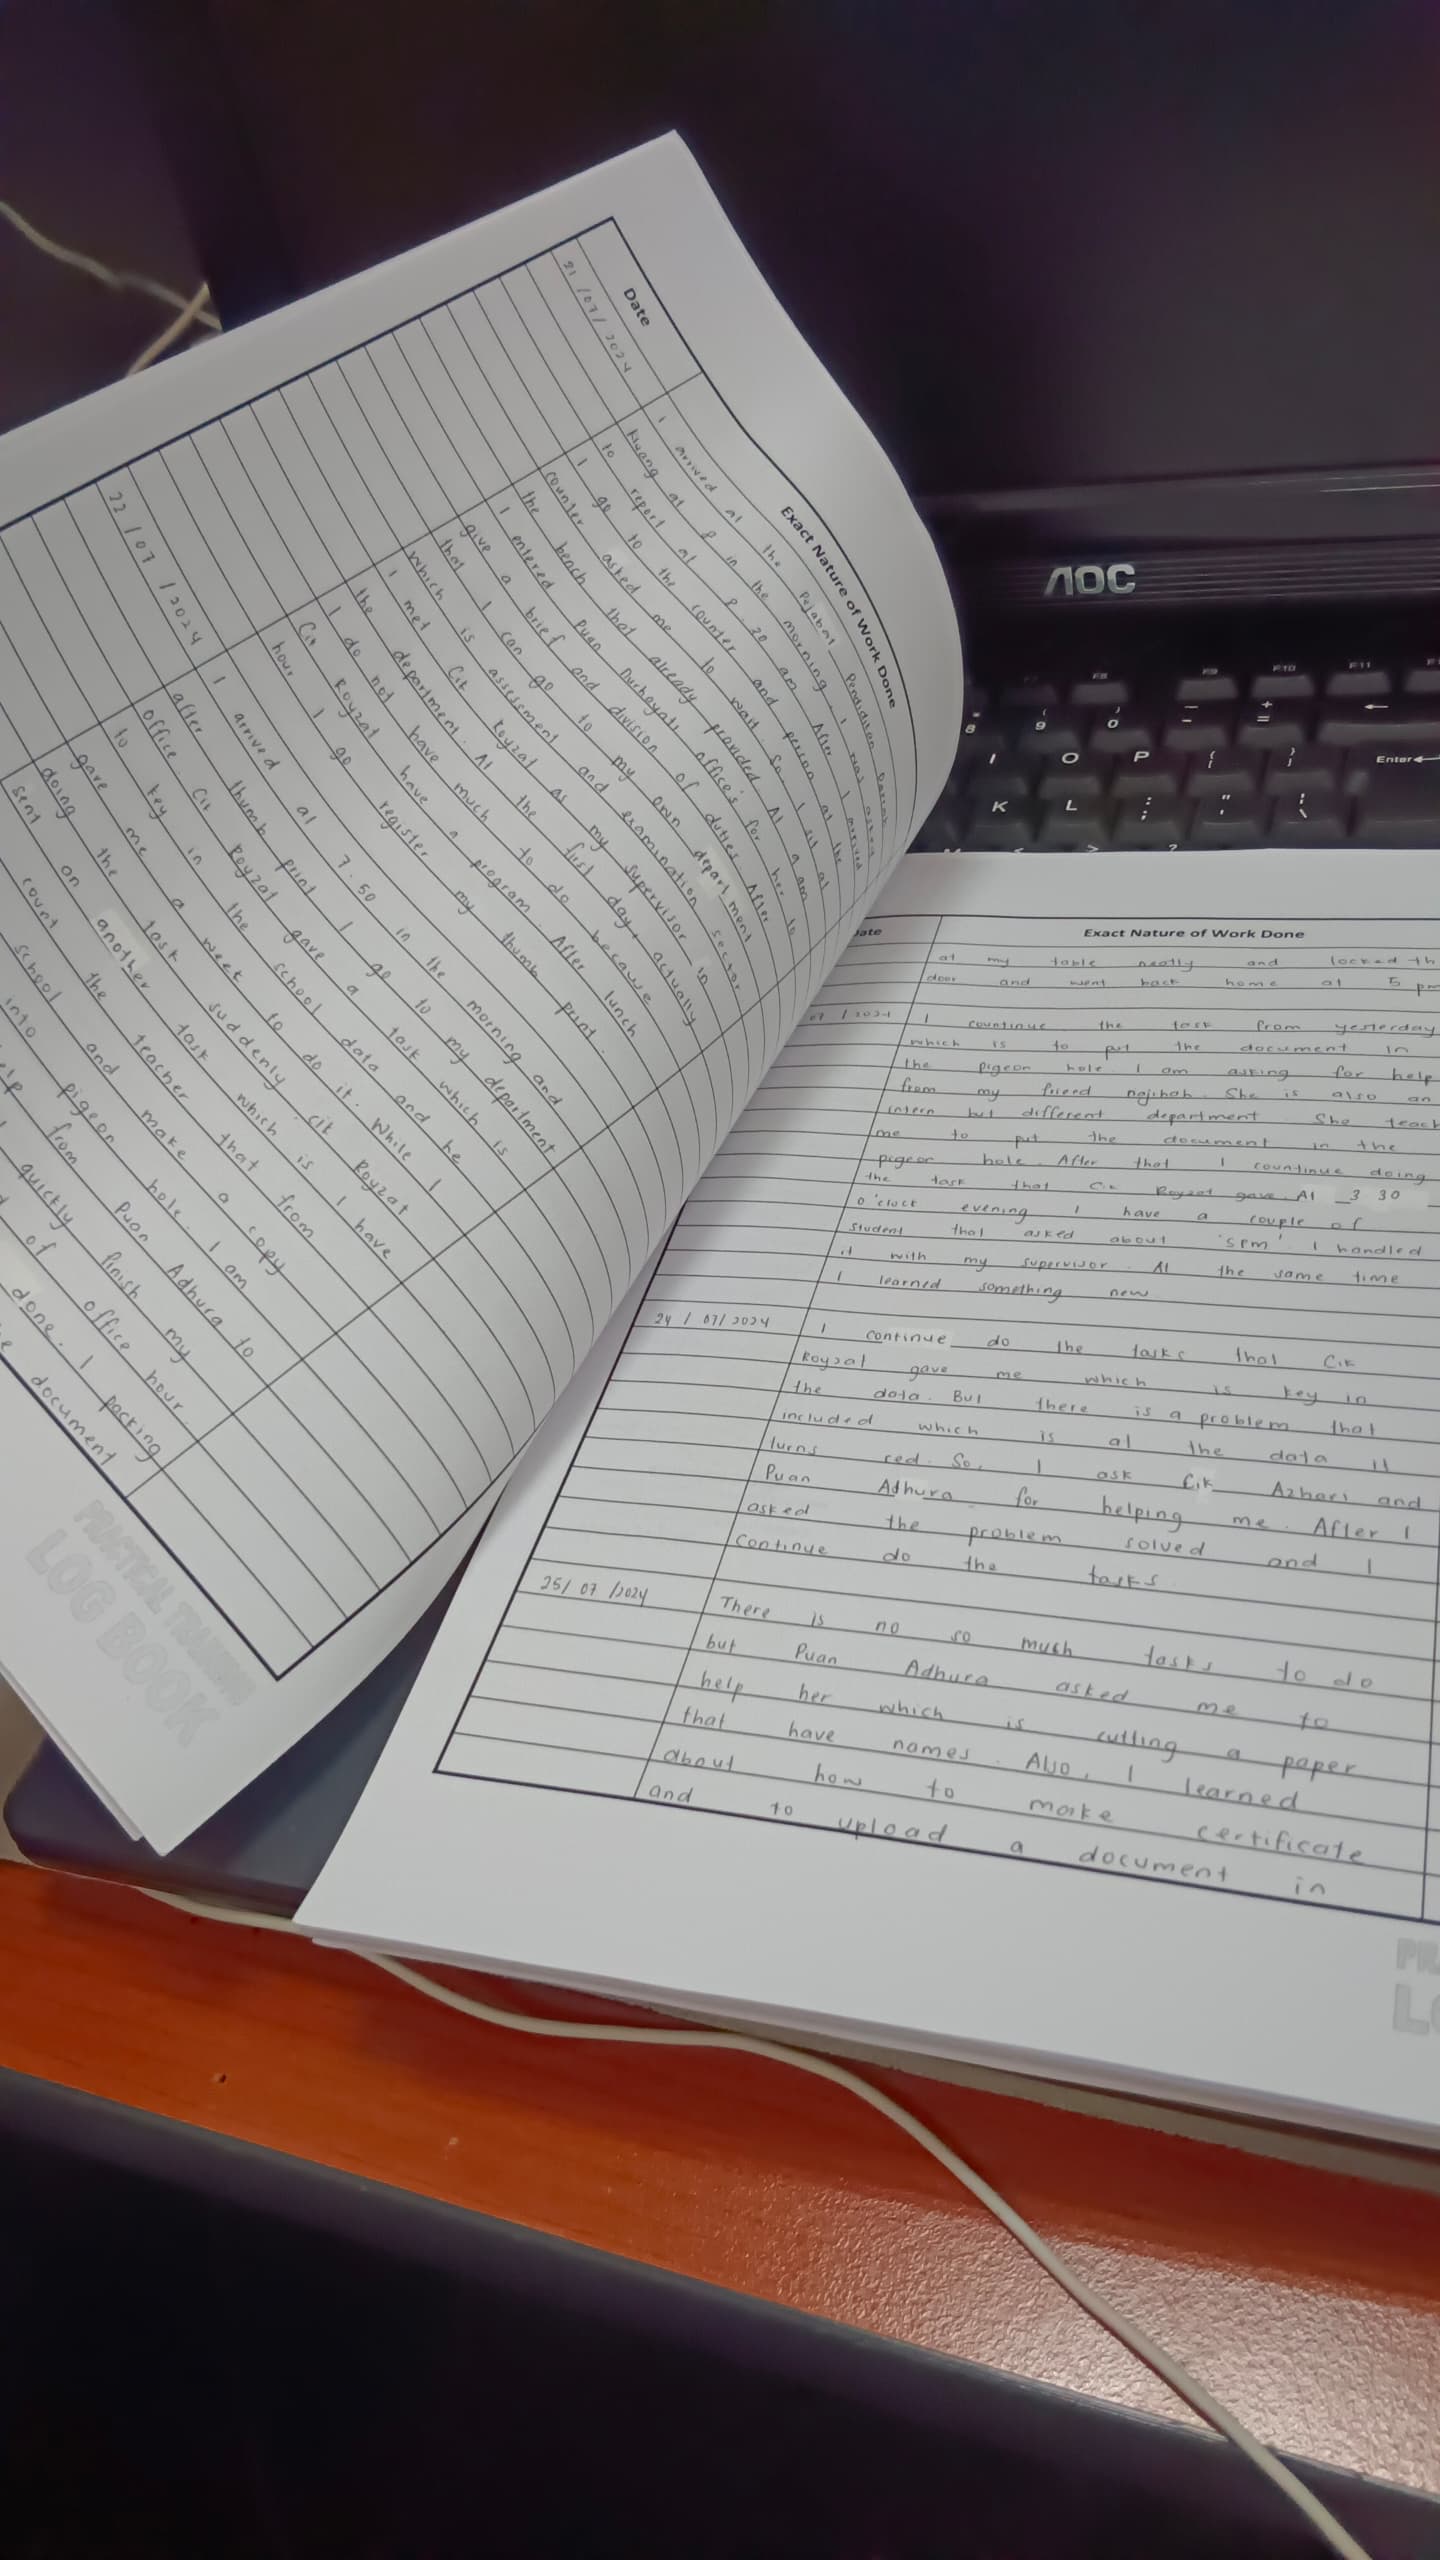 Date
Exact Nature of Work Done
21/07/2024
I arrived at the Pejabat Pendidikan Daerah
Kluang at 8 in the morning. I was asked
to report at 8.20 am. After I arrived
I go to the counter and person at the
counter asked me to wait. So I sit at
the bench that already provided. At 9 am
I entered Puan office's for her to
give a brief and division of duties. After
that I can go to my own department
which is assessment and examination sector
I met Cik Royzat as my supervisor in
the department. At the first day, actually
I do not have much to do because
Cik Royzat have a program. After lunch
hour I go register my thumb print.
22/07/2024
I arrived at 7.50 in the morning and
after thumb print I go to my department
office. Cik Royzat gave a task which is
to key in the school data and he
gave me a week to do it. While I
doing the task suddenly cik Royzat
sent on another task which is I have
count the teacher that from
school and make a copy
into pigeon hole. I am
help from Puan Adhura to
quickly finish my
of office hour.
done. I packing
document
PRACTICAL TRAINING
LOG BOOK
AOC
F8
F9
F10
F11
8
(
9
)
0
_
-
+
=
I
O
P
{
[
}
]
Enter
K
L
:
;
"
'
|
\
>
?
Date
Exact Nature of Work Done
at my table neatly and locked th
door and went back home at 5 pm
07/2024
I countinue the task from yesterday
which is to put the document in
the pigeon hole. I am asking for help
from my friend najihah. She is also an
intern but different department. She teach
me to put the document in the
pigeon hole. After that I countinue doing
the task that Cik Royzat gave. At 3 30
o'clock evening I have a couple of
student that asked about 'spm'. I handled
it with my supervisor. At the same time
I learned something new
24/07/2024
I continue do the tasks that Cik
Royzat gave me which is key in
the data. But there is a problem that
included which is at the data it
turns red. So, I ask Cik Azhari and
Puan Adhura for helping me. After I
asked the problem solved and I
continue do the tasks.
25/07/2024
There is no so much tasks to do
but Puan Adhura asked me to
help her which is cutting a paper
that have names. Also, I learned
about how to make certificate
and to upload a document in